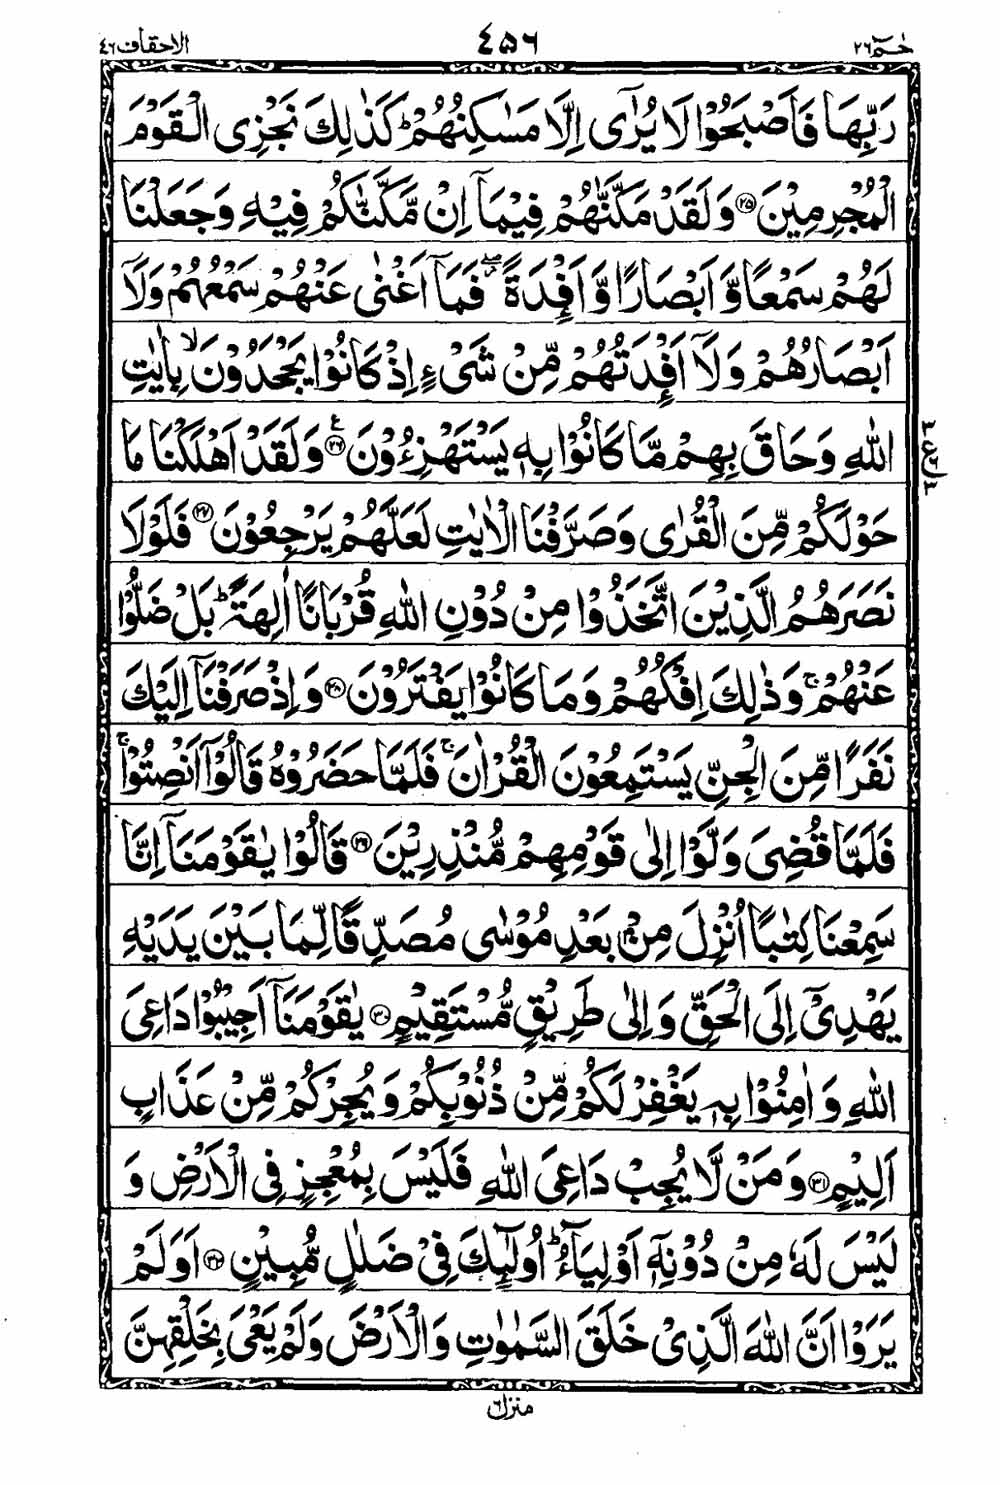 الاحقاف ۴۶ ۴۵۶ حٰمٓ ۲۶
رَبِّهَا فَاَصْبَحُوْا لَا يُرٰۤى اِلَّا مَسٰكِنُهُمْ ؕ كَذٰلِكَ نَجْزِى الْقَوْمَ
الْمُجْرِمِيْنَ ﴿۲۵﴾ وَلَقَدْ مَكَّنّٰهُمْ فِيْمَاۤ اِنْ مَّكَّنّٰكُمْ فِيْهِ وَجَعَلْنَا
لَهُمْ سَمْعًا وَّاَبْصَارًا وَّاَفْـِٕدَةً ۖ فَمَاۤ اَغْنٰى عَنْهُمْ سَمْعُهُمْ وَلَاۤ
اَبْصَارُهُمْ وَلَاۤ اَفْـِٕدَتُهُمْ مِّنْ شَىْءٍ اِذْ كَانُوْا يَجْحَدُوْنَ ۙ بِاٰيٰتِ
اللّٰهِ وَحَاقَ بِهِمْ مَّا كَانُوْا بِهٖ يَسْتَهْزِءُوْنَ ﴿۲۶﴾ ع وَلَقَدْ اَهْلَكْنَا مَا
حَوْلَكُمْ مِّنَ الْقُرٰى وَصَرَّفْنَا الْاٰيٰتِ لَعَلَّهُمْ يَرْجِعُوْنَ ﴿۲۷﴾ فَلَوْلَا
نَصَرَهُمُ الَّذِيْنَ اتَّخَذُوْا مِنْ دُوْنِ اللّٰهِ قُرْبَانًا اٰلِهَةً ؕ بَلْ ضَلُّوْا
عَنْهُمْ ۚ وَذٰلِكَ اِفْكُهُمْ وَمَا كَانُوْا يَفْتَرُوْنَ ﴿۲۸﴾ وَاِذْ صَرَفْنَاۤ اِلَيْكَ
نَفَرًا مِّنَ الْجِنِّ يَسْتَمِعُوْنَ الْقُرْاٰنَ ۚ فَلَمَّا حَضَرُوْهُ قَالُوْۤا اَنْصِتُوْا ۚ
فَلَمَّا قُضِىَ وَلَّوْا اِلٰى قَوْمِهِمْ مُّنْذِرِيْنَ ﴿۲۹﴾ قَالُوْا يٰقَوْمَنَاۤ اِنَّا
سَمِعْنَا كِتٰبًا اُنْزِلَ مِنْۢ بَعْدِ مُوْسٰى مُصَدِّقًا لِّمَا بَيْنَ يَدَيْهِ
يَهْدِىْۤ اِلَى الْحَقِّ وَاِلٰى طَرِيْقٍ مُّسْتَقِيْمٍ ﴿۳۰﴾ يٰقَوْمَنَاۤ اَجِيْبُوْا دَاعِىَ
اللّٰهِ وَاٰمِنُوْا بِهٖ يَغْفِرْ لَكُمْ مِّنْ ذُنُوْبِكُمْ وَيُجِرْكُمْ مِّنْ عَذَابٍ
اَلِيْمٍ ﴿۳۱﴾ وَمَنْ لَّا يُجِبْ دَاعِىَ اللّٰهِ فَلَيْسَ بِمُعْجِزٍ فِى الْاَرْضِ وَ
لَيْسَ لَهٗ مِنْ دُوْنِهٖۤ اَوْلِيَآءُ ؕ اُولٰٓئِكَ فِىْ ضَلٰلٍ مُّبِيْنٍ ﴿۳۲﴾ اَوَلَمْ
يَرَوْا اَنَّ اللّٰهَ الَّذِىْ خَلَقَ السَّمٰوٰتِ وَالْاَرْضَ وَلَمْ يَعْىَ بِخَلْقِهِنَّ
منزل ۶